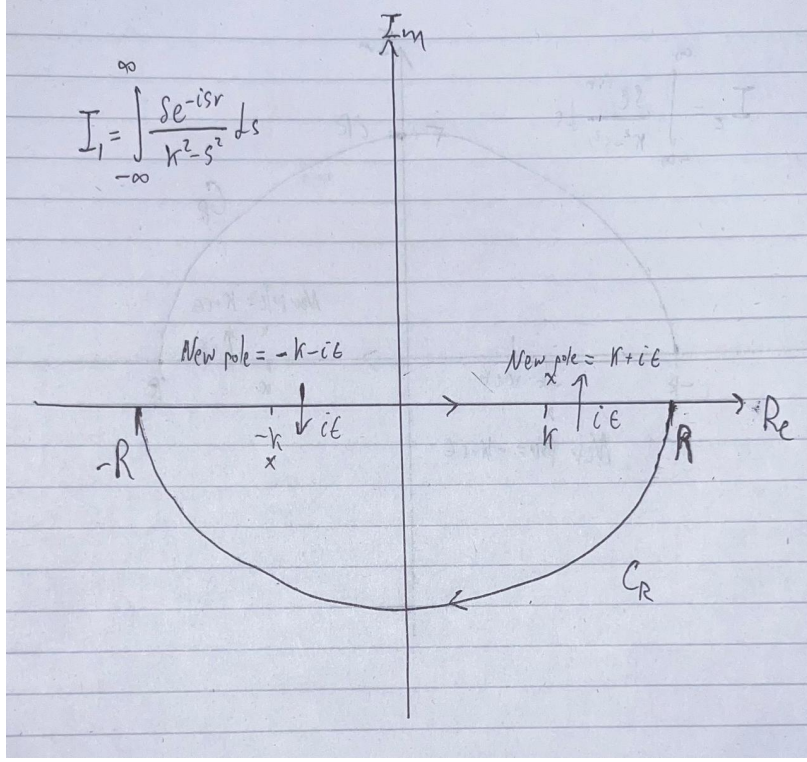 Im
I₁ = ∫_{-∞}^{∞} \frac{se^{-isr}}{k²-s²} ds
New pole = -k-iϵ
New pole = k+iϵ
x
-R
-k
x
iϵ
k
iϵ
R
Re
C_R